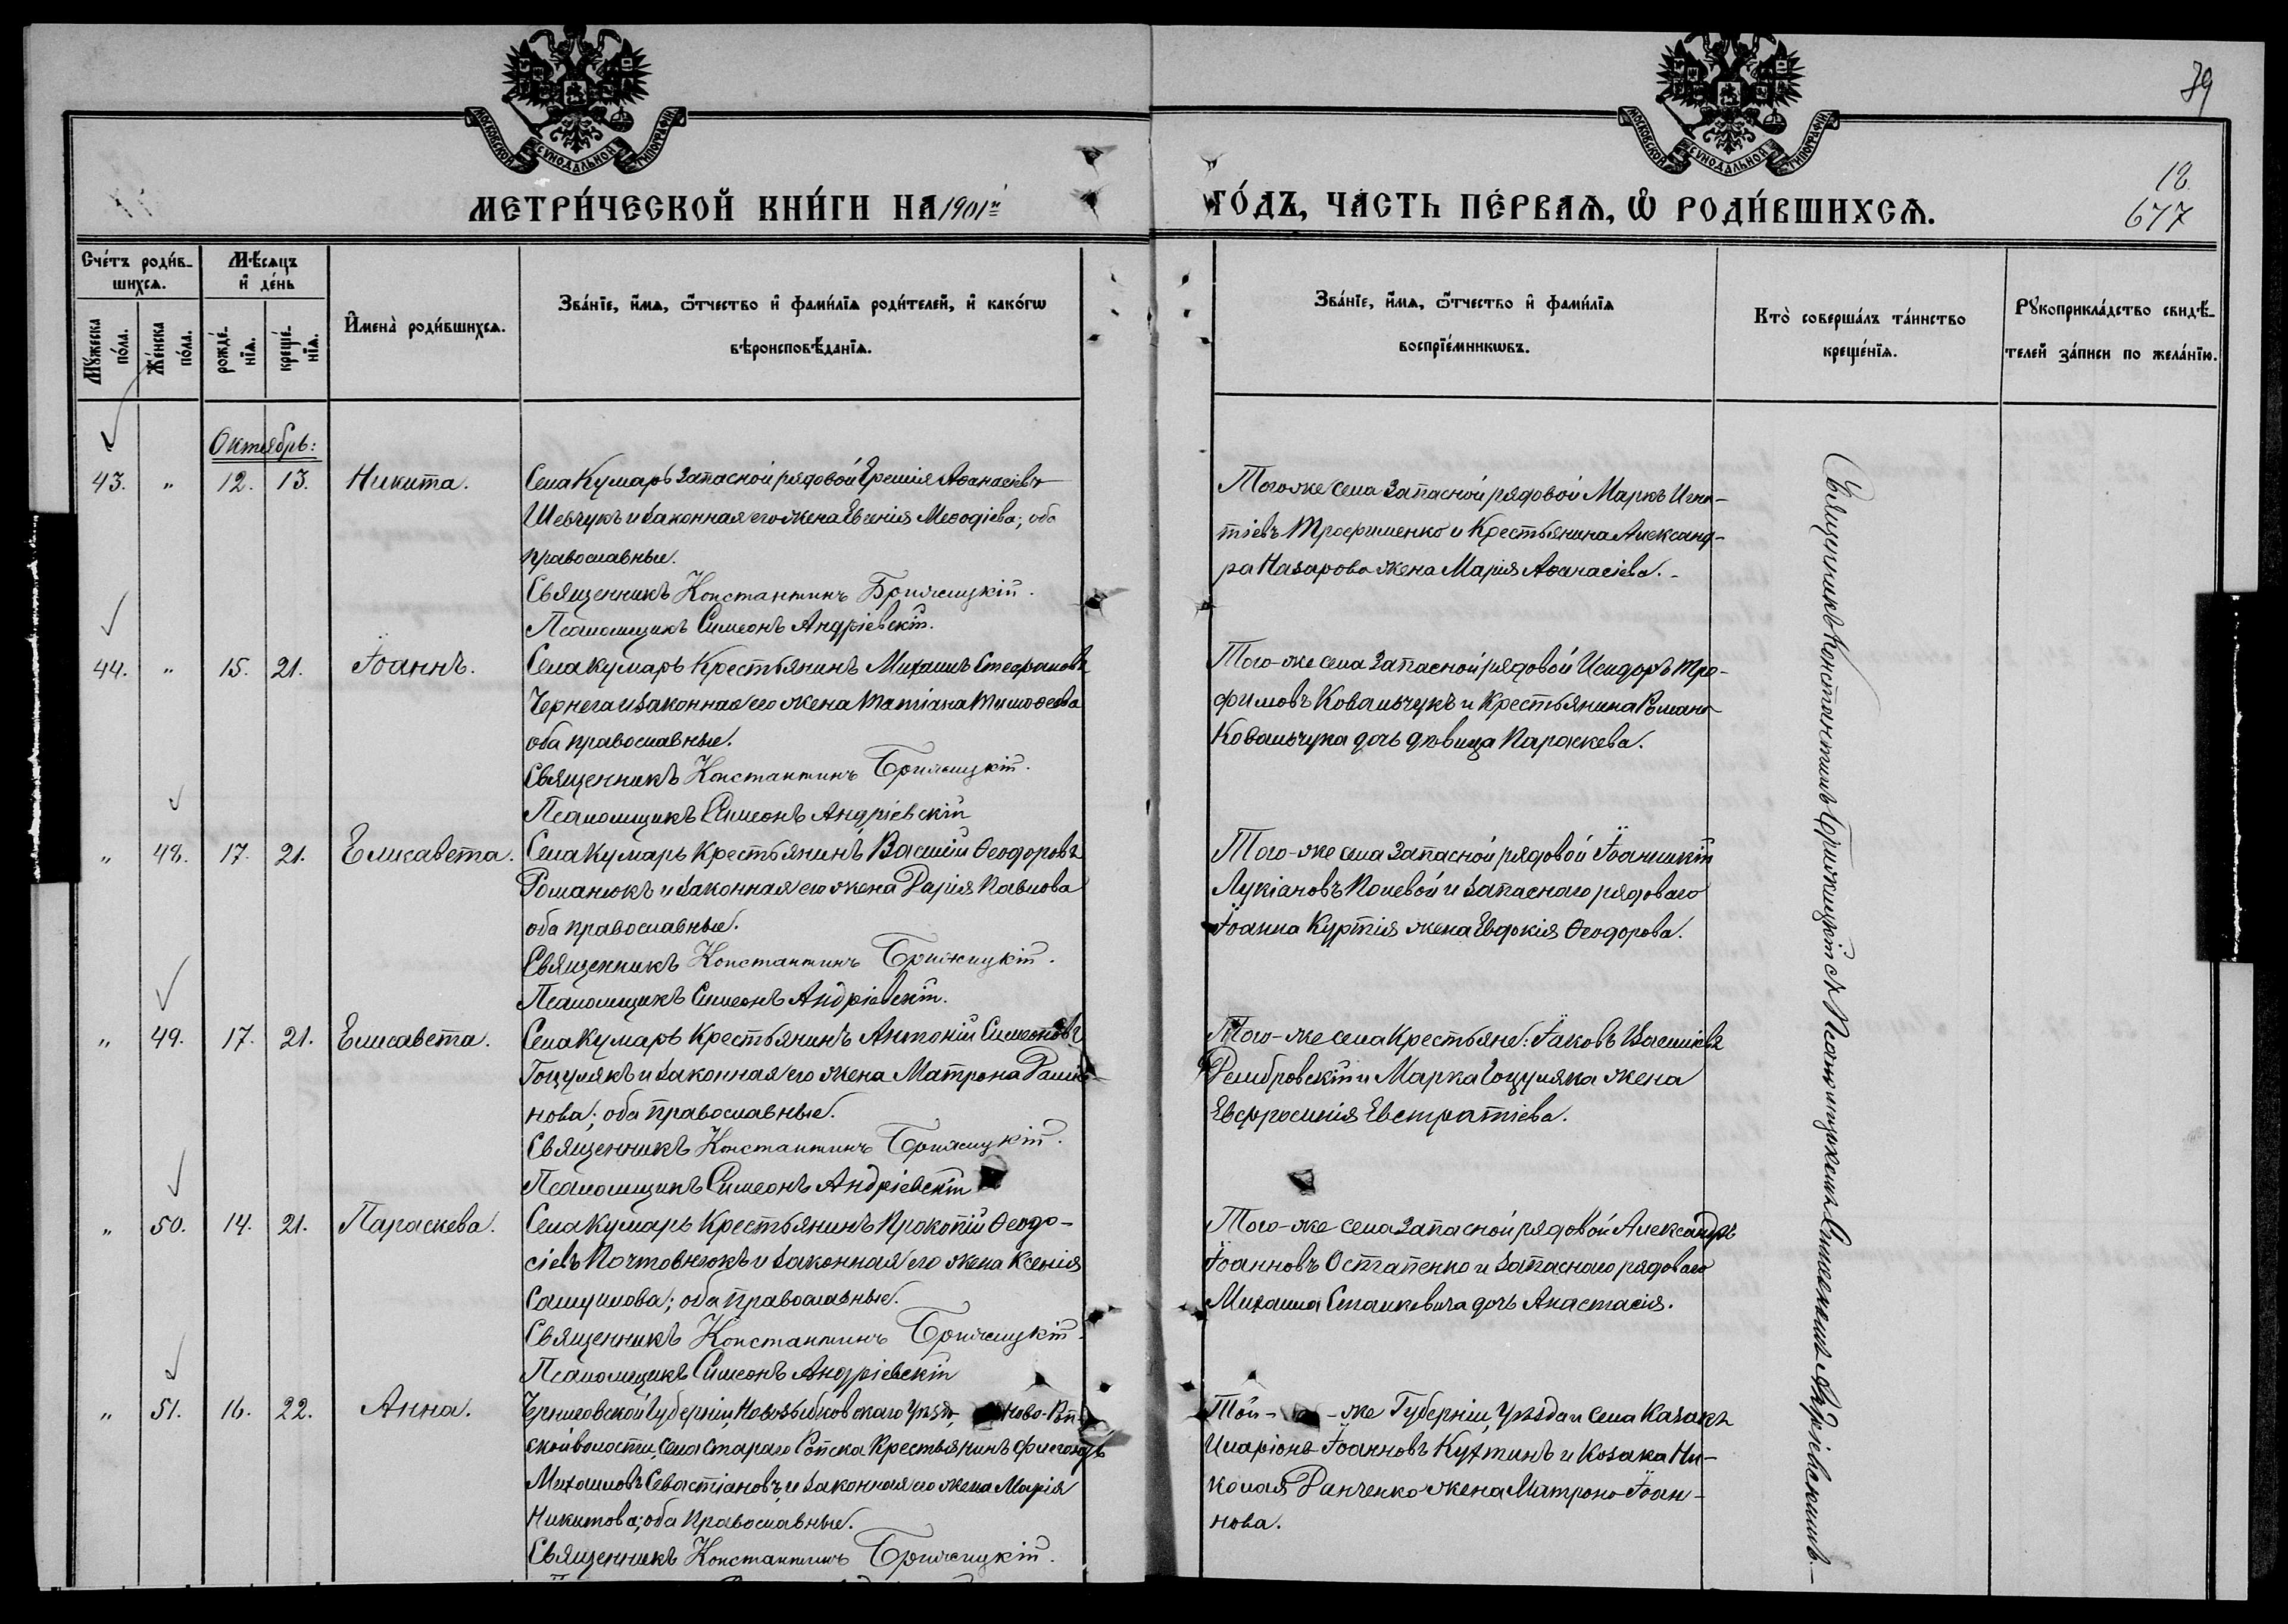 39
МОСКОВСКОЙ СѴНОДАЛЬНОЙ ТИПОГРАФІИ
МОСКОВСКОЙ СѴНОДАЛЬНОЙ ТИПОГРАФІИ
МЕТРИ́ЧЕСКОЙ КНИ́ГИ НА 1901й
ГО́ДЪ, ЧА́СТЬ ПЕ́РВАѦ, Ѡ РОДИ́ВШИХСѦ.
12
677
Сче́тъ роди́в-
шихсѧ.
Мꙋ́жеска по́ла.
Же́нска по́ла.
Мѣ́сѧцъ
и де́нь
рожде́-
нїѧ.
креще́-
нїѧ.
Имена̀ роди́вшихсѧ.
Зва́нїе, и́мѧ, ѻ́тчество и фами́лїѧ роди́телей, и како́гѡ
вѣроисповѣ́данїѧ.
Зва́нїе, и́мѧ, ѻ́тчество и фами́лїѧ
воспрїе́мникѡвъ.
Кто̀ соверша́лъ та́инство
креще́нїѧ.
Рꙋкоприкла́дство свидѣ́-
телей за́писи по жела́нїю.
Октябрь:
43. " 12. 13. Никита.
Села Кумаръ запасной рядовой Ермія Аѳанасіевъ
Шевчукъ и законная его жена Евгенія Меѳодіева; оба
православные.
Священникъ Константинъ
Псаломщикъ Симеонъ Андріевскій.
Того же села запасной рядовой Маркъ Игна-
тіевъ Трофименко и Крестьянина Александ-
ра Назарова жена Марія Аѳанасіева.
44. " 15. 21. Іоаннъ.
Села Кумаръ Крестьянинъ Михаилъ Стефановъ
Чернега и законная его жена Татіана Тимоѳеева
оба православные.
Священникъ Константинъ
Псаломщикъ Симеонъ Андріевскій
Того-же села запасной рядовой Исидоръ Тро-
фимовъ Ковальчукъ и Крестьянина Романа
Ковальчука дочь дѣвица Параскева.
" 48. 17. 21. Елисавета.
Села Кумаръ Крестьянинъ Василій Ѳеодоровъ
Романюкъ и законная его жена Дарія Павлова
оба православные.
Священникъ Константинъ
Псаломщикъ Симеонъ Андріевскій.
Того-же села запасной рядовой Іоанникій
Лукіановъ Полевой и запасного рядоваго
Іоанна Куртія жена Евдокія Ѳеодорова.
" 49. 17. 21. Елисавета.
Села Кумаръ Крестьянинъ Антоній Симеоновъ
Гоцулякъ и законная его жена Матрона Дамія-
нова; оба православные.
Священникъ Константинъ
Псаломщикъ Симеонъ Андріевскій
Того-же села Крестьяне: Іаковъ Василіевъ
Дембровскій и Марка Гоцуляка жена
Евфросинія Евстратіева.
" 50. 14. 21. Параскева.
Села Кумаръ Крестьянинъ Прокопій Ѳеодо-
сіевъ Почтовнюкъ и законная его жена Ксенія
Самуилова; оба православные.
Священникъ Константинъ
Псаломщикъ Симеонъ Андріевскій
Того-же села запасной рядовой Александръ
Іоанновъ Остапенко и запасного рядоваго
Михаила Станкевича дочь Анастасія.
" 51. 16. 22. Анна.
Черниговской Губерніи, Новозыбковскаго Уѣзда, Ново-
ской волости, села Стараго Крестьянинъ
Михаиловъ Севастіановъ, и законная его жена Марія
Никитова; оба православные.
Священникъ Константинъ
Той-же Губерніи, Уѣзда и села Казакъ
Иларіонъ Іоанновъ и Козака Ни-
колая Данченко жена Матрона Іоан-
нова.
Священникъ Константинъ съ Псаломщикомъ Симеономъ Андріевскимъ.